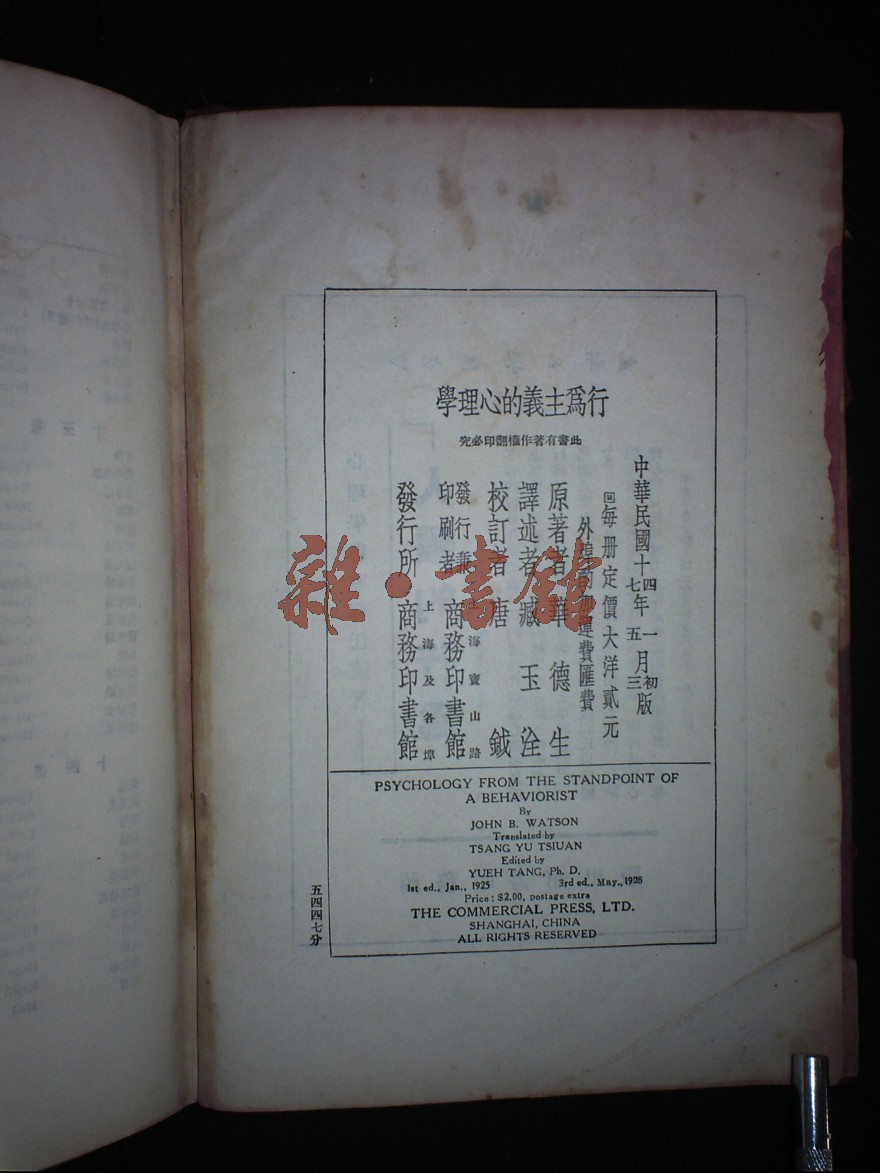 行爲主義的心理學
此書有著作權翻印必究
中華民國十四年一月初版
十七年五月三版
回每册定價大洋貳元
外埠酌加運費匯費
原著者 華德生
譯述者 臧玉洤
校訂者 唐鉞
發行兼印刷者 上海寶山路 商務印書館
發行所 上海及各埠 商務印書館
雜·書館
PSYCHOLOGY FROM THE STANDPOINT OF
A BEHAVIORIST
By
JOHN B. WATSON
Translated by
TSANG YU TSIUAN
Edited by
YUEH TANG, Ph. D.
1st ed., Jan., 1925 3rd ed., May., 1928
Price: $2.00, postage extra
THE COMMERCIAL PRESS, LTD.
SHANGHAI, CHINA
ALL RIGHTS RESERVED
五四四七分